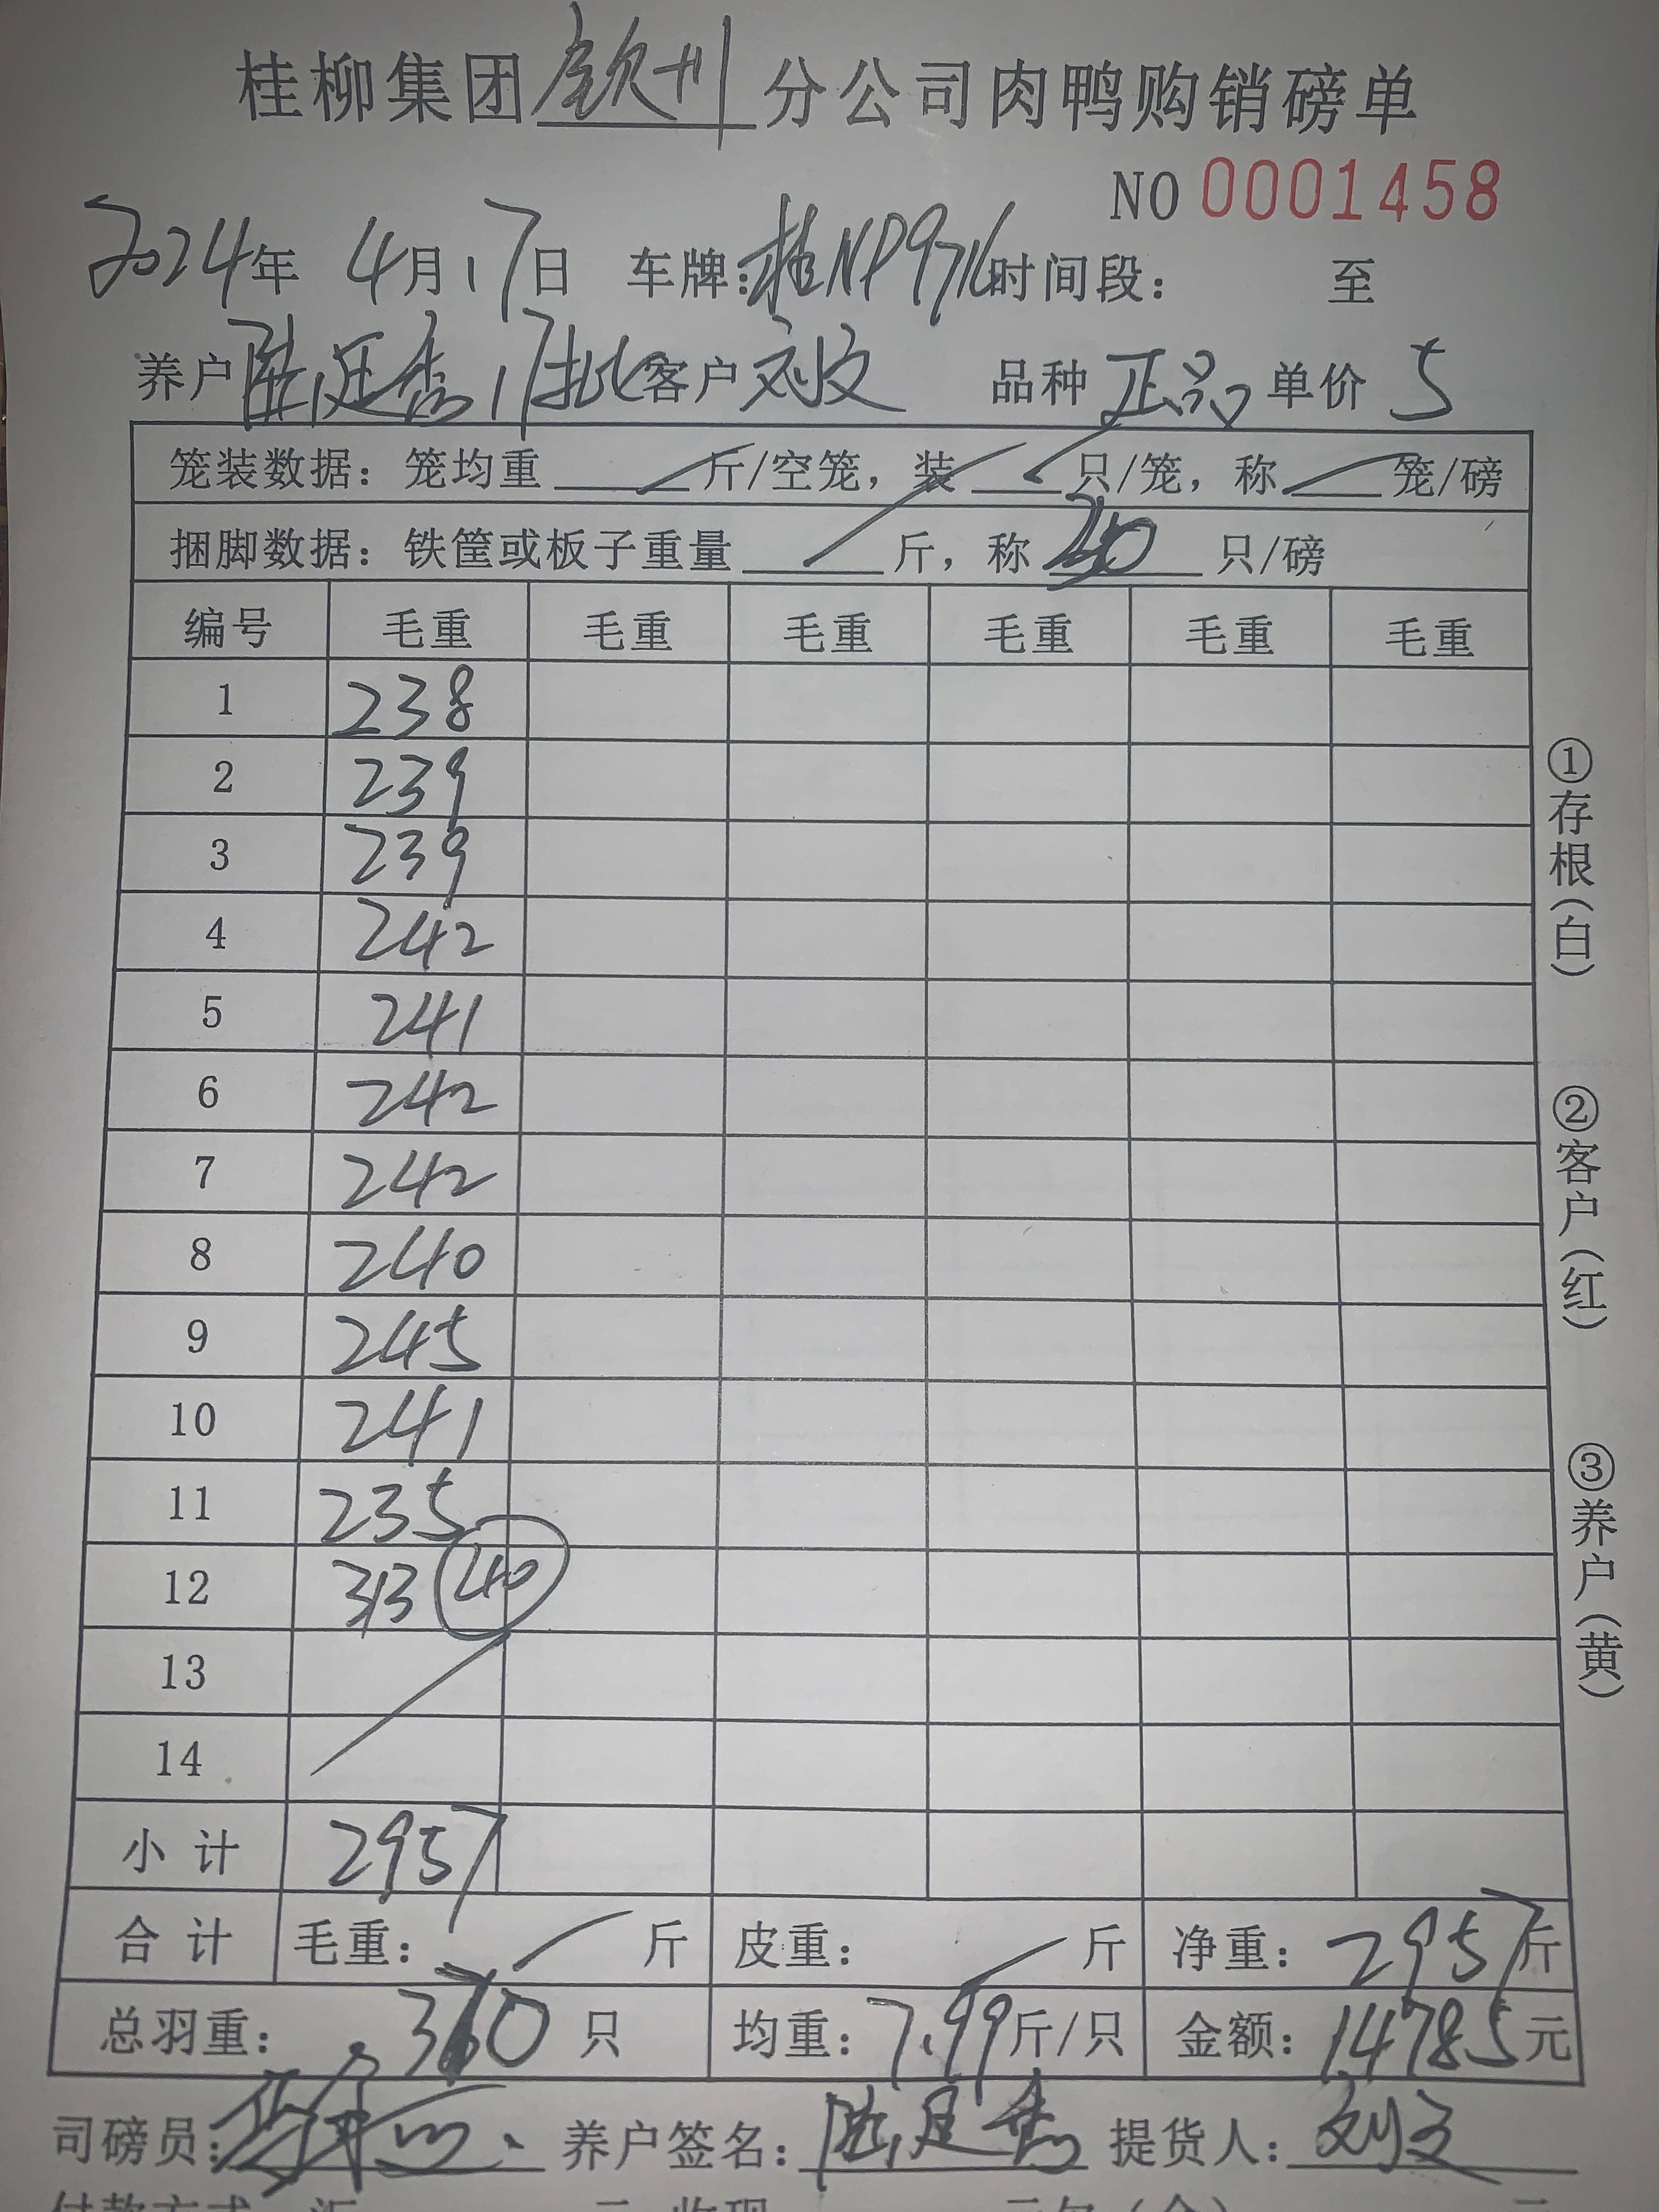 桂柳集团钦州分公司肉鸭购销磅单
NO 0001458
2024年 4月17日 车牌:桂NP9716 时间段: 至
养户 陆廷秀 17批 客户 刘文 品种 正品 单价 5
笼装数据: 笼均重 斤/空笼, 装 只/笼, 称 笼/磅
捆脚数据: 铁筐或板子重量 斤, 称 30 只/磅
编号 毛重 毛重 毛重 毛重 毛重 毛重
1 238
2 239
3 239
4 242
5 241
6 242
7 242
8 240
9 245
10 241
11 235
12 313 40
13
14
小计 2957
合计 毛重: 斤 皮重: 斤 净重: 2957斤
总羽重: 370 只 均重: 7.99斤/只 金额: 14785元
司磅员: 养户签名: 陆廷秀 提货人: 刘文
①存根(白)
②客户(红)
③养户(黄)